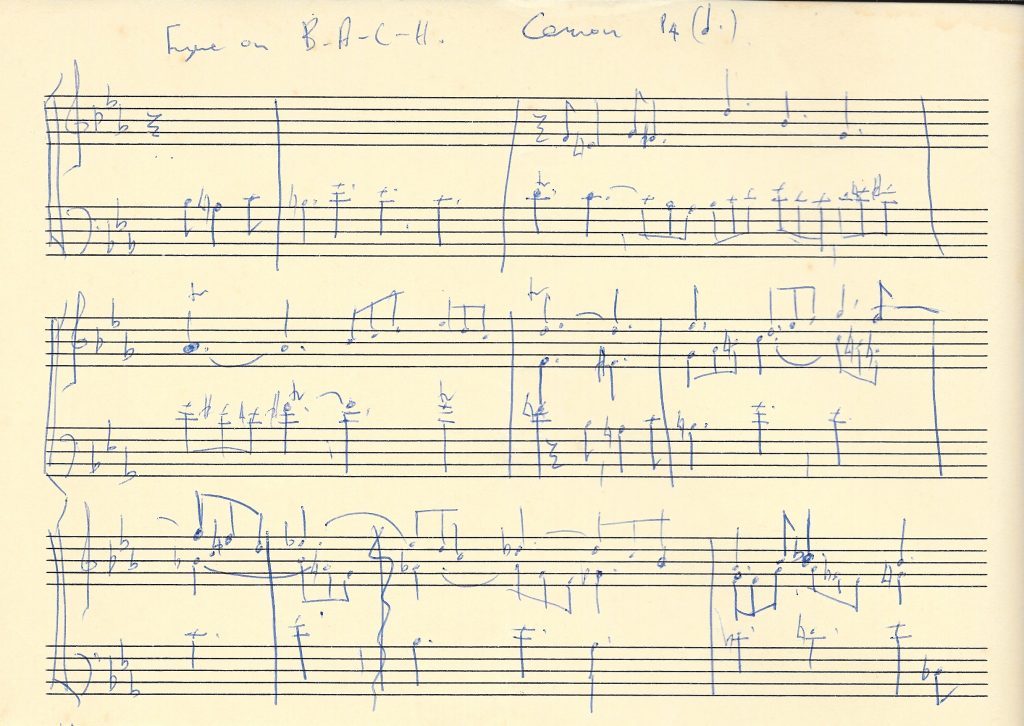 Fugue on B-A-C-H. Canon P4 (d.)